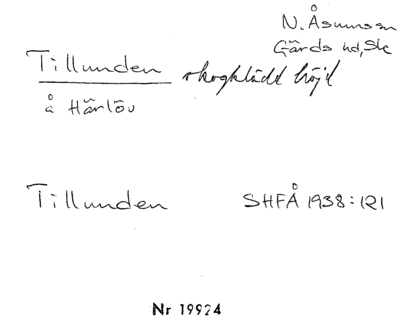 N. Åsumssn
Gärds hd, Sk
Tillunden skogklädt höjd
å Härlöv
Tillunden SHFÅ 1938:121
Nr 19924